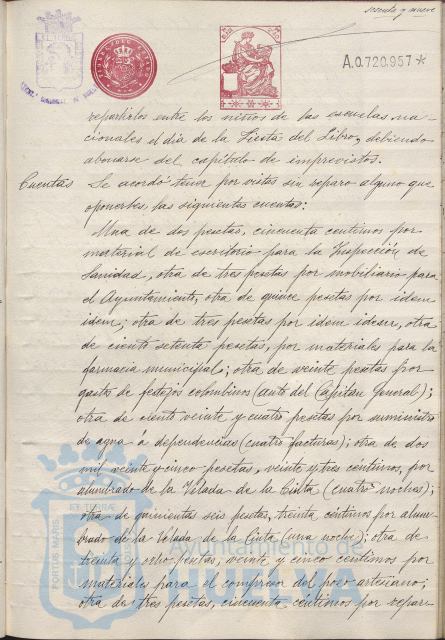 sesenta y nueve
A.0.720.957*
repartirlos entre los niños de las escuelas na-
cionales el día de la Fiesta del Libro, debiendo
abonarse del capítulo de imprevistos.
Cuentas Se acordó tener por vistas sin reparo alguno que
oponerles las siguientes cuentas:
Una de dos pesetas, cincuenta centimos por
material de escritorio para la Inspección de
Sanidad, otra de tres pesetas por mobiliario para
el Ayuntamiento, otra de quince pesetas por idem
idem; otra de tres pesetas por idem idem, otra
de ciento setenta pesetas, por materiales para la
farmacia municipal; otra de veinte pesetas por
gastos de festejos colombinos (auto del Capitan General);
otra de ciento veinte y cuatro pesetas por suministro
de agua á dependencias (cuatro facturas); otra de dos
mil veinte y cinco pesetas, veinte y tres centimos, por
alumbrado de la Velada de la Cinta (cuatro noches);
otra de quinientas seis pesetas, treinta centimos por alum-
brado de la Velada de la Cinta (una noche); otra de
treinta y ocho pesetas, veinte y cinco centimos por
materiales para el compresor del pozo artesiano;
otra de tres pesetas, cincuenta centimos por repara-
PORTUS MARIS
Ayuntamiento de
HUELVA